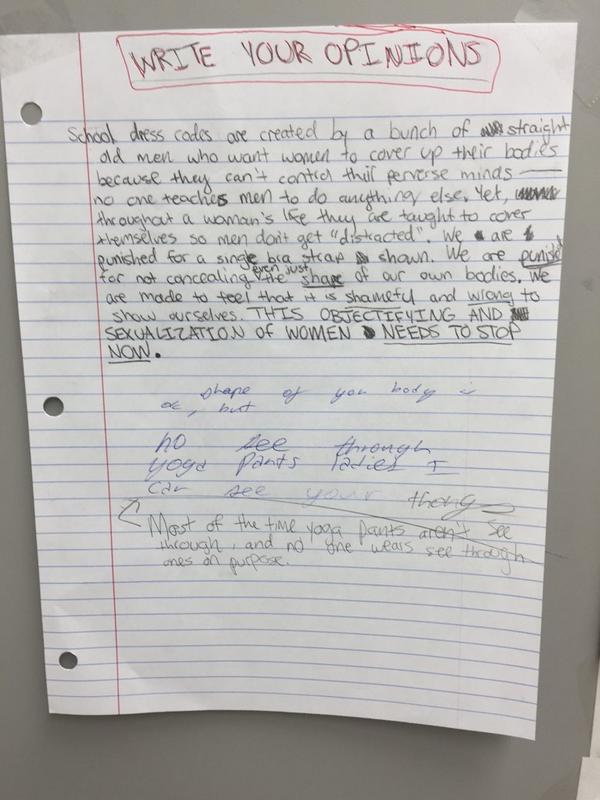 WRITE YOUR OPINIONS
School dress codes are created by a bunch of straight
old men who want women to cover up their bodies
because they can't control their perverse minds —
no one teaches men to do anything else. Yet,
throughout a woman's life they are taught to cover
themselves so men don't get "distracted". We are
punished for a single bra strap shown. We are punished
for not concealing even just the shape of our own bodies. We
are made to feel that it is shameful and wrong to
show ourselves. THIS OBJECTIFYING AND
SEXUALIZATION of WOMEN NEEDS TO STOP
NOW.
shape of your body is
ok, but
no see through
yoga pants ladies I
can see your thong
Most of the time yoga pants aren't see
through, and no one wears see through
ones on purpose.